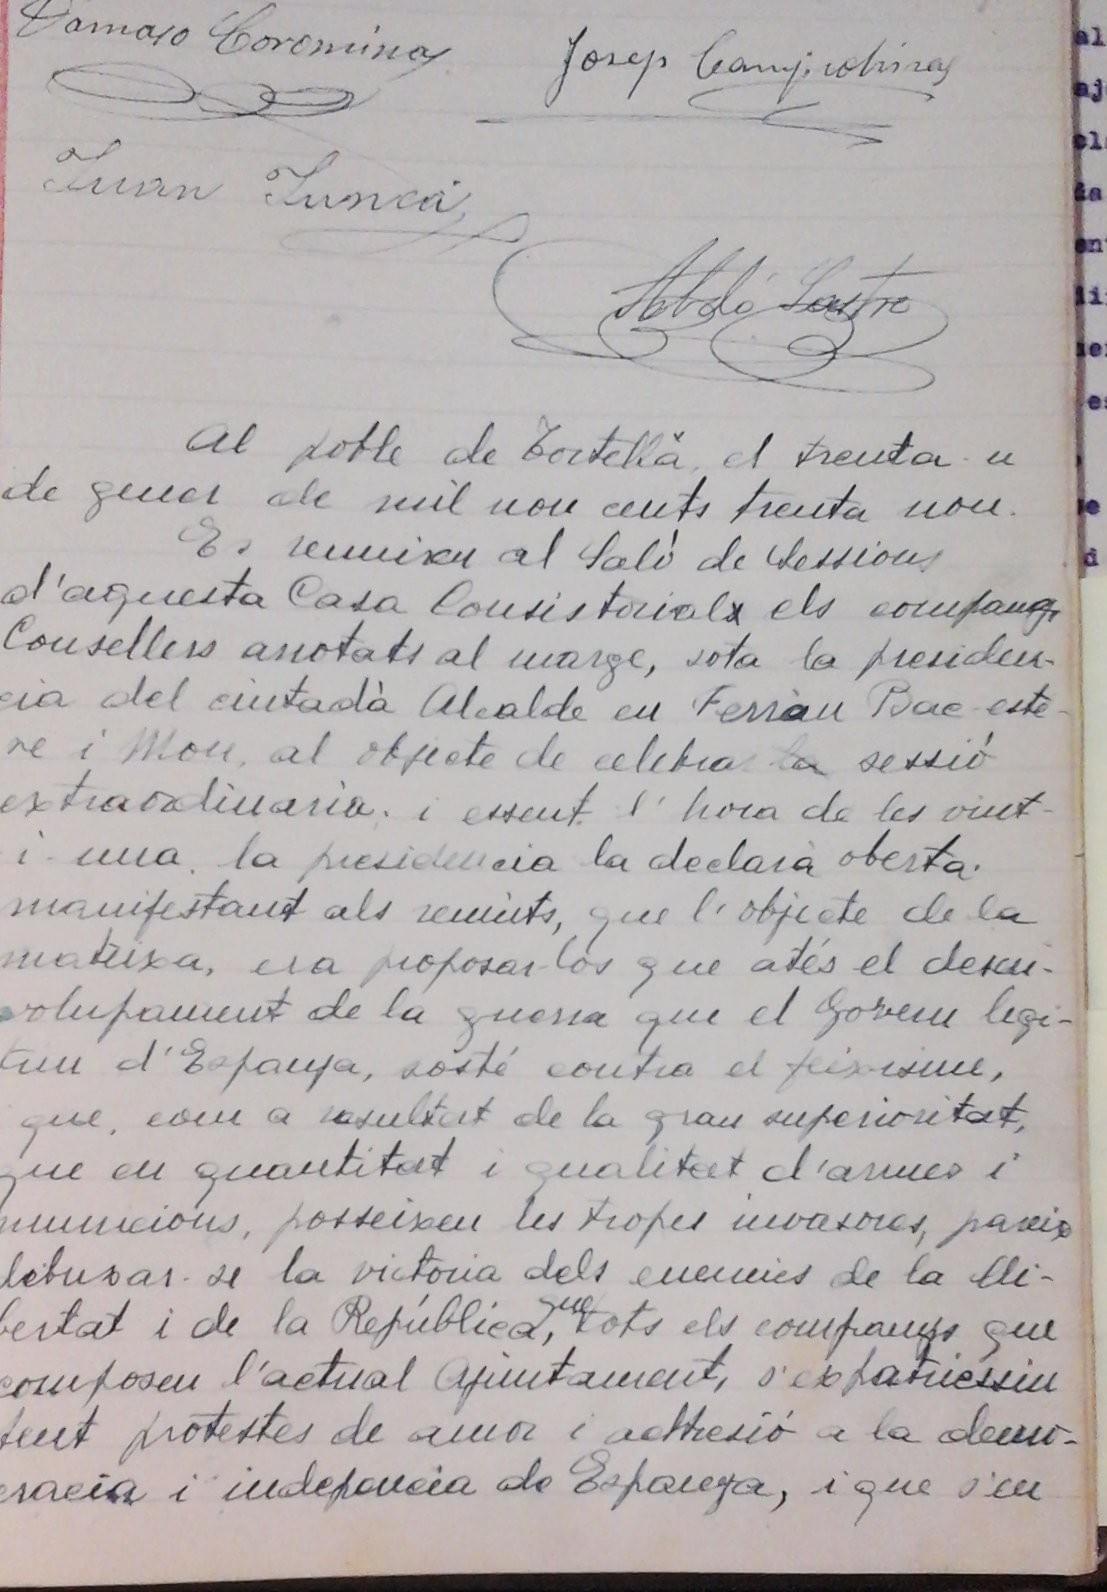 Damaso Coromina
Josep Camprobinas
Juan Juncà
Abdó Sastre
Al poble de Tortellà, el trenta-u
de gener de mil nou cents trenta nou.
Es reuneixen al Saló de Sessions
d'aquesta Casa Consistorial els companys
Consellers anotats al marge, sota la presiden-
cia del ciutadà Alcalde en Ferràn Bac-este-
ve i Mon, al objecte de celebrar la sessió
extraordinaria. i essent l'hora de les vint-
i-una, la presidencia la declarà oberta.
manifestant als reunits, que l'objecte de la
mateixa, era proposar-los que atés el desen-
volupament de la guerra que el Govern legi-
tim d'Espanya, sosté contra el feixisme,
i que, com a resultat de la gran superioritat,
que en quantitat i qualitat d'armes i
municions, posseixen les tropes invasores, pareix
dibuxar-se la victoria dels enemics de la lli-
bertat i de la República, que tots els companys que
composen l'actual Ajuntament, s'expatriessin
fent protestes de amor i adhesió a la demo-
cracia i indepencia de Espanya, i que s'en
al
aj
els
ia
en
li
es
e
d